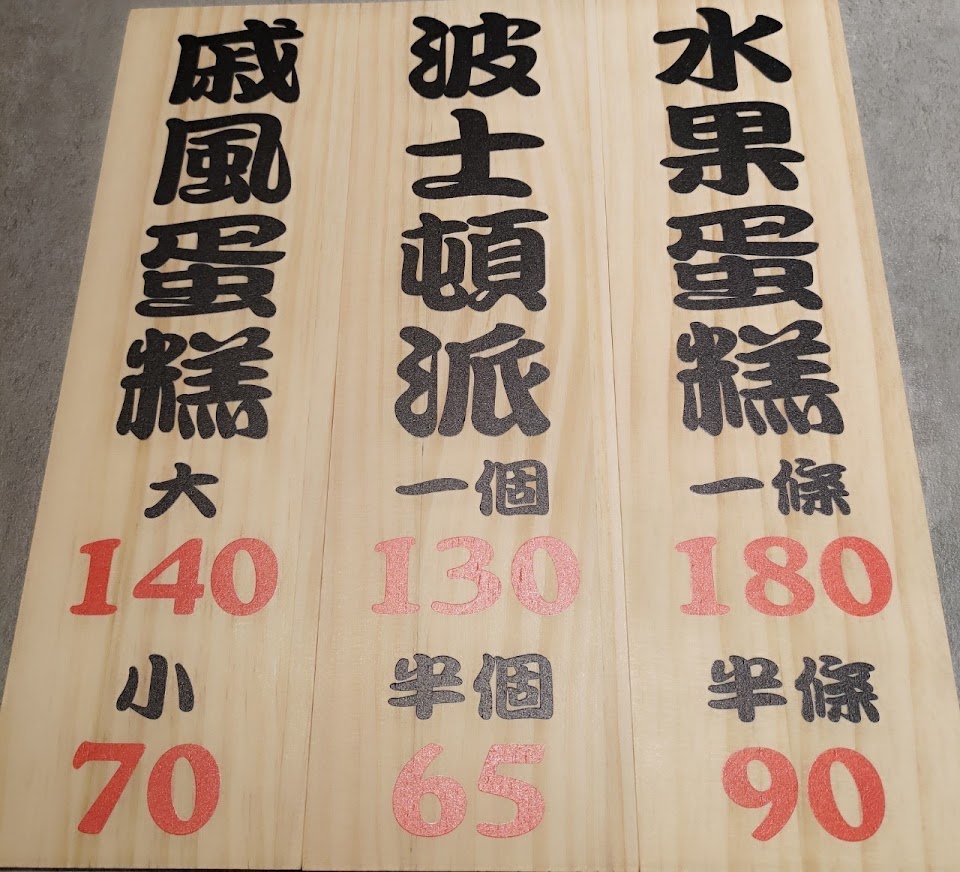 水果蛋糕
一條
180
半條
90
波士頓派
一個
130
半個
65
戚風蛋糕
大
140
小
70